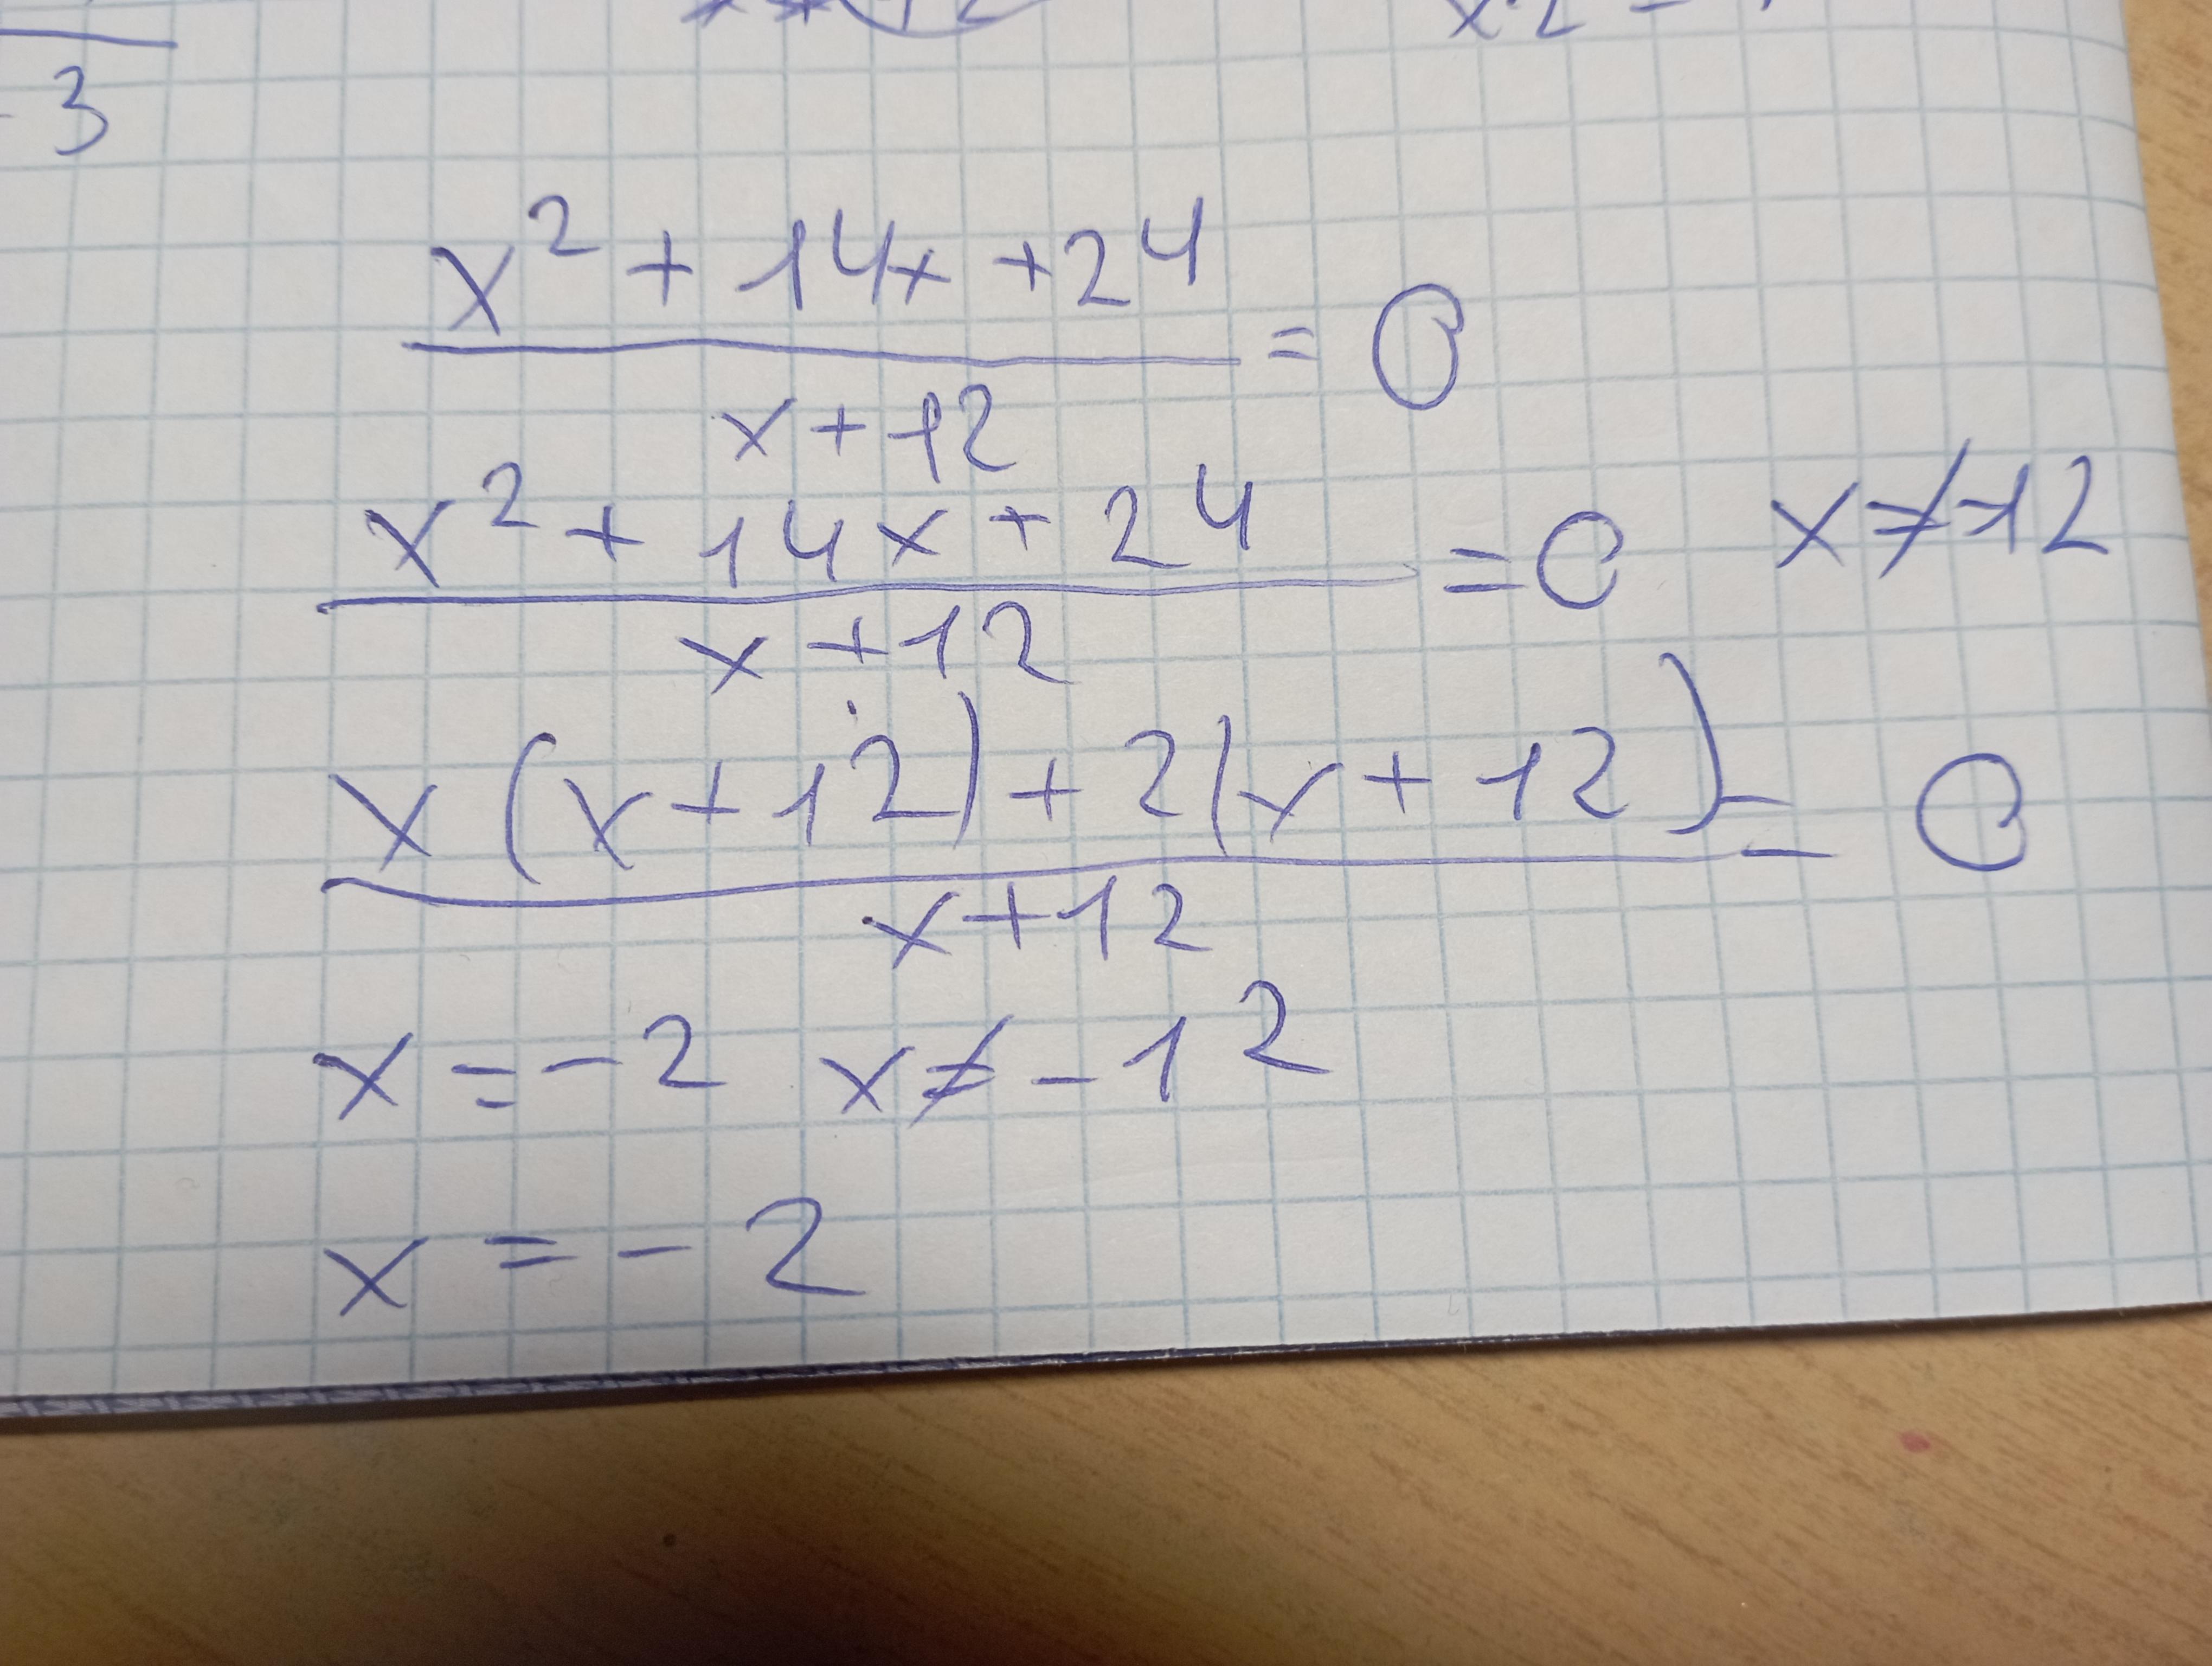 3
x² + 14x + 24
――――――― = 0
x + 12
x² + 14x + 24
――――――― = 0 x ≠ -12
x + 12
x (x + 12) + 2(x + 12)
――――――――――― = 0
x + 12
x = -2 x ≠ -12
x = -2